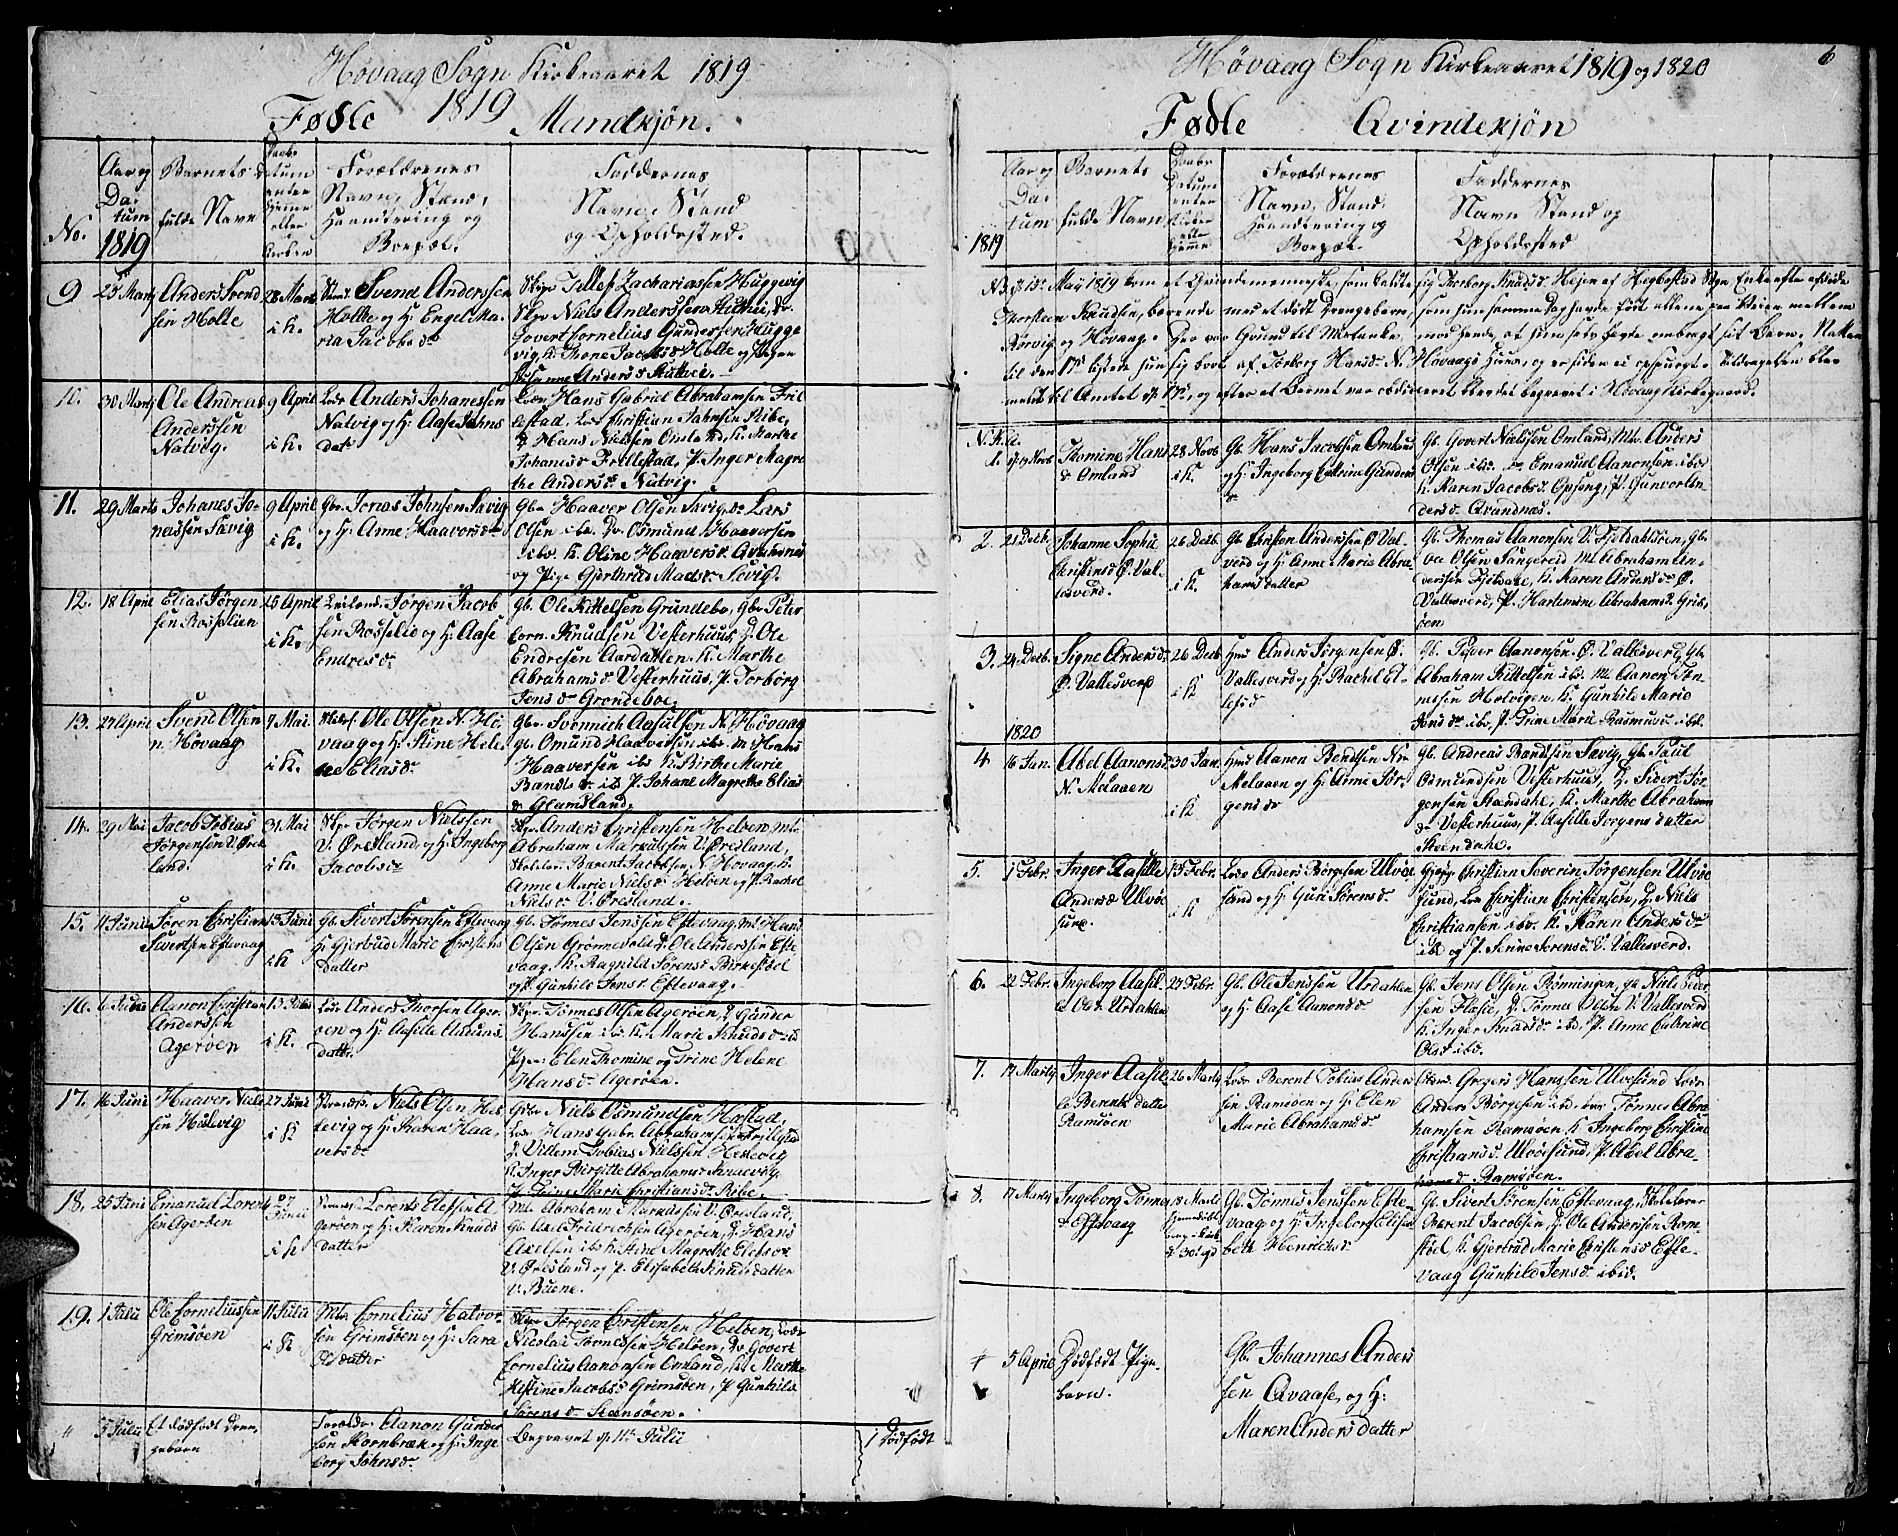 Høvaag Sogn Kirkeaaret 1819
1819
Fødte Mandkjøn.
No.
Aar og
Da-
tum
1819
Barnets
fulde Navn
Daabs
Datum
enten
hjemme
eller
kirken
Forældrenes
Navn, Stand,
Haandtering og
Bopæl.
Faddernes
Navn, Stand
og Opholdssted.
9
25 Marts
Anders Svend
sen Holte
28 Marts
i K.
Svend Anderssen
Holte og H: Engel Ma-
ria Jacobsd
Skpr Tellef Zachariassen Huggevig
Skpr Niels Anderssen
Govert Cornelius Gundersen Hugge
vig, K. Thone Jacobsd Holte og Pigen
Susanne Andersd
10.
30 Marts
Ole Andreas
Anderssen
Natvig.
9 April
i K.
Lods Anders Johanessen
Natvig og H: Aase Johns
datr
Hans Gabriel Abrahamsen Fril
lestad, Lods Christian Johnsen Ribe,
D. Hans Nielssen Omland, K. Marthe
Johanesd Frillestad, P. Inger Magre
the Andersd. Natvig.
11.
29 Marts
Johanes Jo-
nassen Sævig
9 April
i K.
Gbr. Jonas Johnsen Sævig
og H: Anne Haavorsdr
Gbr Haaver Olsen Sævig, Lars
Olsen ibd. Osmund Haaversen
ibd. K. Oline Haaversd. Qvannes
og Pige Gjerthrud Madsd. Sævig.
12.
18 April
Elias Jørgen
sen Rosselien
25 April
i K.
Jørgen Jacob
sen Rosselie og H: Aase
Endresdr
Gb. Ole Kittelsen Grundebo, Gbr Peter
Knudsen Vesterhuus, D. Ole
Endresen Aardahlen. K. Marthe
Abrahamsd Vesterhuus, P. Torborg
Jensd Grondeboe.
13.
27 April
Svend Olsen
n. Høvaag
7 Mai
i K.
Ole Olsen N. Hø
vaag og H: Stine Hele
ne Eliasdr
Gbr. Svennich Aasulsen N. Høvaag
Gb. Omund Haaversen ibd. M Hans
Haaversen ibd K. Birthe Marie
Bendtsdr ibd P. Johane Magrethe Elias
dr Glamsland.
14.
29 Mai
Jacob Tobias
Jørgensen V. Øres
land.
31 Mai
i K.
Skpr Jørgen Nielssen
V. Øresland, og H: Ingeborg
Jacobsdr
Skpr Anders Christensen Heløen, Mtr.
Abraham Markussen V. Øresland,
Skoleler. Barent Jacobsen N. Høvaag, K.
Anne Marie Nielsdr Heløen og P. Rachel
Nielsdr V. Øresland.
15.
11 Junii
Søren Christian
Sivertsen Eftevaag
13 Junii
i K
Gb Sivert Sørensen Eftevaag
H: Gjertrud Marie Christens
datter
Gb. Tønnes Jenssen Eftevaag, Mt Hans
Olsen Grønnevold, D. Ole Anderssen Efte
vaag, K. Ragnild Sørensd Birkestøel
og P. Gunhild Jensd. Eftevaag.
16.
6 Junii
Aanon Christian
Anderssen
Agerøen
13 Junii
i K.
Lods Anders Thorsen Ager
øen og H: Aasille
datter
Skpr. Tønnes Olsen Agerøen, D. Gunder
Hanssen ibd K. Marie Knudsdr ibd
Piger. Elen Thomine og Trine Helene
Hansdr Agerøen.
17.
16 Junii
Haaver Niels
sen Hellvig
27 Junii
i K
Niels Olsen Hel
levig og H: Karen Haa,
versdr
Gbr Niels Osmundsen Høstad,
Lods Hans Gabr. Abrahamsen Frillestad
D. Villem Tobias Nielssen Hellevig
K. Inger Birgitte Abrahamsd
P. Trine Marie Christiansd. Ribe.
18.
25 Junii
Emanuel Lorent
sen Agerøen
27
Junii
i K
Lorents Elefsen A
gerøen og H: Karen Knuds
datter
Mtr. Abraham Markussen V. Øresland,
Gb Axel Friderichsen Agerøen, D. Hans
Axelsen ibd K. Stine Magrethe Elefsdr
V. Øresland og P. Elisabeth Knudsdatter
V. Buene.
19.
1 Julii
Ole Corneliussen
Grimsøen
11 Julii
i K
Mtr Cornelius Halvor-
sen Grimsøen og H: Sara
Olsdatter
Skpr Jørgen Christensen Heløen, Lods
Nicolai Tønnessen Heløen, D. Govert
Cornelius Aanonsen Omland, K. Marthe
Kistine Jacobsd Grimsøen, P Gunhild
Sørensdr Steensøen.
"
5 Julii
Et dødfødt Dren-
gebarn
Forældre Aanon Gunder
sen Kornbræk og H: Inge
borg Johnsdr
Begravet d. 11te Julii
1 dødfødt
Høvaag Sogn Kirkeaaret 1819 og 1820
6
Fødte Qvindekjøn
1819
Aar og
Da-
tum
Barnets
fulde Navn
Daabs
Datum
enten
kirken
eller
hjemme
Forældrenes
Navn, Stand,
Haandtering og
Bopæl.
Faddernes
Navn Stand og
Opholdssted
NB. d. 15de May 1819 kom et Qvindemenneske, som kaldte sig Thorborg Knudsdr Heien af Hegbostad Sogn Enke efter afdøde
Thorsteen Knudsen, bærende med et dødt Drengebarn, som hun samme Dag havde født allene paa Veien mellem
Kørvig og Høvaag. Der var Grund til Mistanke modhende, at hun selv havde ombragt sit Barn. Natten
til den 17de listede hun sig bort af Torborg Hansdr N. Høvaags Huus, og er siden ei opspurgt.
meldt til Amtet d. 17de, og efter at Barnet var obduceret blev det begravet i Høvaag Kirkegaard.
No. K.A.
1.
d. 19 Novb
Thomine Hans
dr Omland
28 Novb
i K.
Gb. Hans Jacobsen Omland
og H. Ingeborg Cathrine Gunders
dr
Gb. Govert Nielssen Omland, Mtr. Anders
Olsen ibd. Emanuel Aanonsen ibd
K. Karen Jacobsd. Opsong, P. Gunvor An-
dersdr Qvandnæs.
2.
21 Decb.
Johanne Sophie
Christensd Ø. Val-
lesverd.
26 Decb.
i K
Gb. Christen Andersen Ø Val-
lesverd og H: Anne Marie Abra
hamsdatter
Gb. Thomas Aanonsen V. Fjeldahlsøen, Gb.
Olsen Tangereid Mt Abraham An-
derssen Fjeldahl, K. Karen Andersdr Ø.
Vallesverd, P. Hartemine Abrahamsd. Gris-
øen
3.
24 Decb.
Signe Andersdr
Ø. Vallesverd
26 Decb
i K
Hmd Anders Jørgensen Ø.
Vallesverd og H: Rachel El-
lefsd
Gb. Peder Aanonsen Ø. Vallesverd, Gb.
Abraham Kittelsen ibd. Mt Aanon Tøn-
nessen Helvigen K. Gunhild Marie
Jensdr ibd. P. Trine Marie Rasmusd ibd.
1820
4
16 Jan.
Abel Aanonsdr
N. Melaaen
30 Jan.
i K
Hmd Aanon Bendtsen N.
Melaaen og H. Anne Jør-
gensdr
Gb. Andreas Bendtsen Sævig, Gb. Paul
Osmundsen Vesterhuus, D. Sivert Jør
gensen Steendahl, K. Marthe Abrahams
dr Vesterhuus, P. Aasille Jørgensdatter
Steendahl.
5.
1 Febr.
Inger Aasille
Andersd Ulvøe
sund
13 Febr.
i K
Lods Anders Børgesen Ulvøe
sund og H: Guri Sørensd.
Christian Severin Jørgensen Ulvøe
sund, Lods Christian Christensen, D. Niels
Christiansen ibd. K. Karen Andersdr
ibd og P. Trine Sørensd. V. Vallesverd.
6.
22 Febr.
Ingeborg Aasil-
le Olsdr Urdahlen
27 Febr.
Gb. Ole Jenssen Urdahlen
og H: Aase Aanonsdr
Gb. Jens Olsen Rønningen, Niels Peder
sen Flasie, D. Tønnes Olsen V. Vallesverd
K. Inger Knudsdr ibd. P. Anne Cathrine
Olsd ibd.
7.
17 Marts
Inger Aasil-
le Berentsdatter
Ramsøen
26 Marts
Lods Berent Tobias Ander
sen Ramsøen og H: Elen
Marie Abrahamsd
Gregers Hanssen Ulvesund Lods
Anders Børgesen ibd. Tønnes Abra
hamsen Ramsøen K Ingeborg Christine
Christiansd Ulvøesund, P. Abel Abra-
hamsd Ramsøen.
8.
17 Marts
Ingeborg Tønnes
dr Eftevaag
18 Marts
hjemdøbt
d. 30
Gb. Tønnes Jenssen Efte-
vaag og H: Ingeborg Elisa
beth Henrichsdr
Gb. Sivert Sørensen Eftevaag, Skolelærer
Berent Jacobsen, D. Ole Anderssen Rom-
støel, K. Gjertrud Marie Christensd Efte-
vaag Gunhild Jensd. ibid.
5 April
Dødfødt Pige-
barn.
Gb. Johannes Anders
sen Qvaase, og H:
Maren Andersdatter